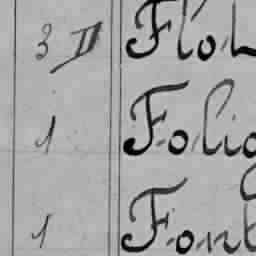 3 II Flor
1 Folig
1 Font